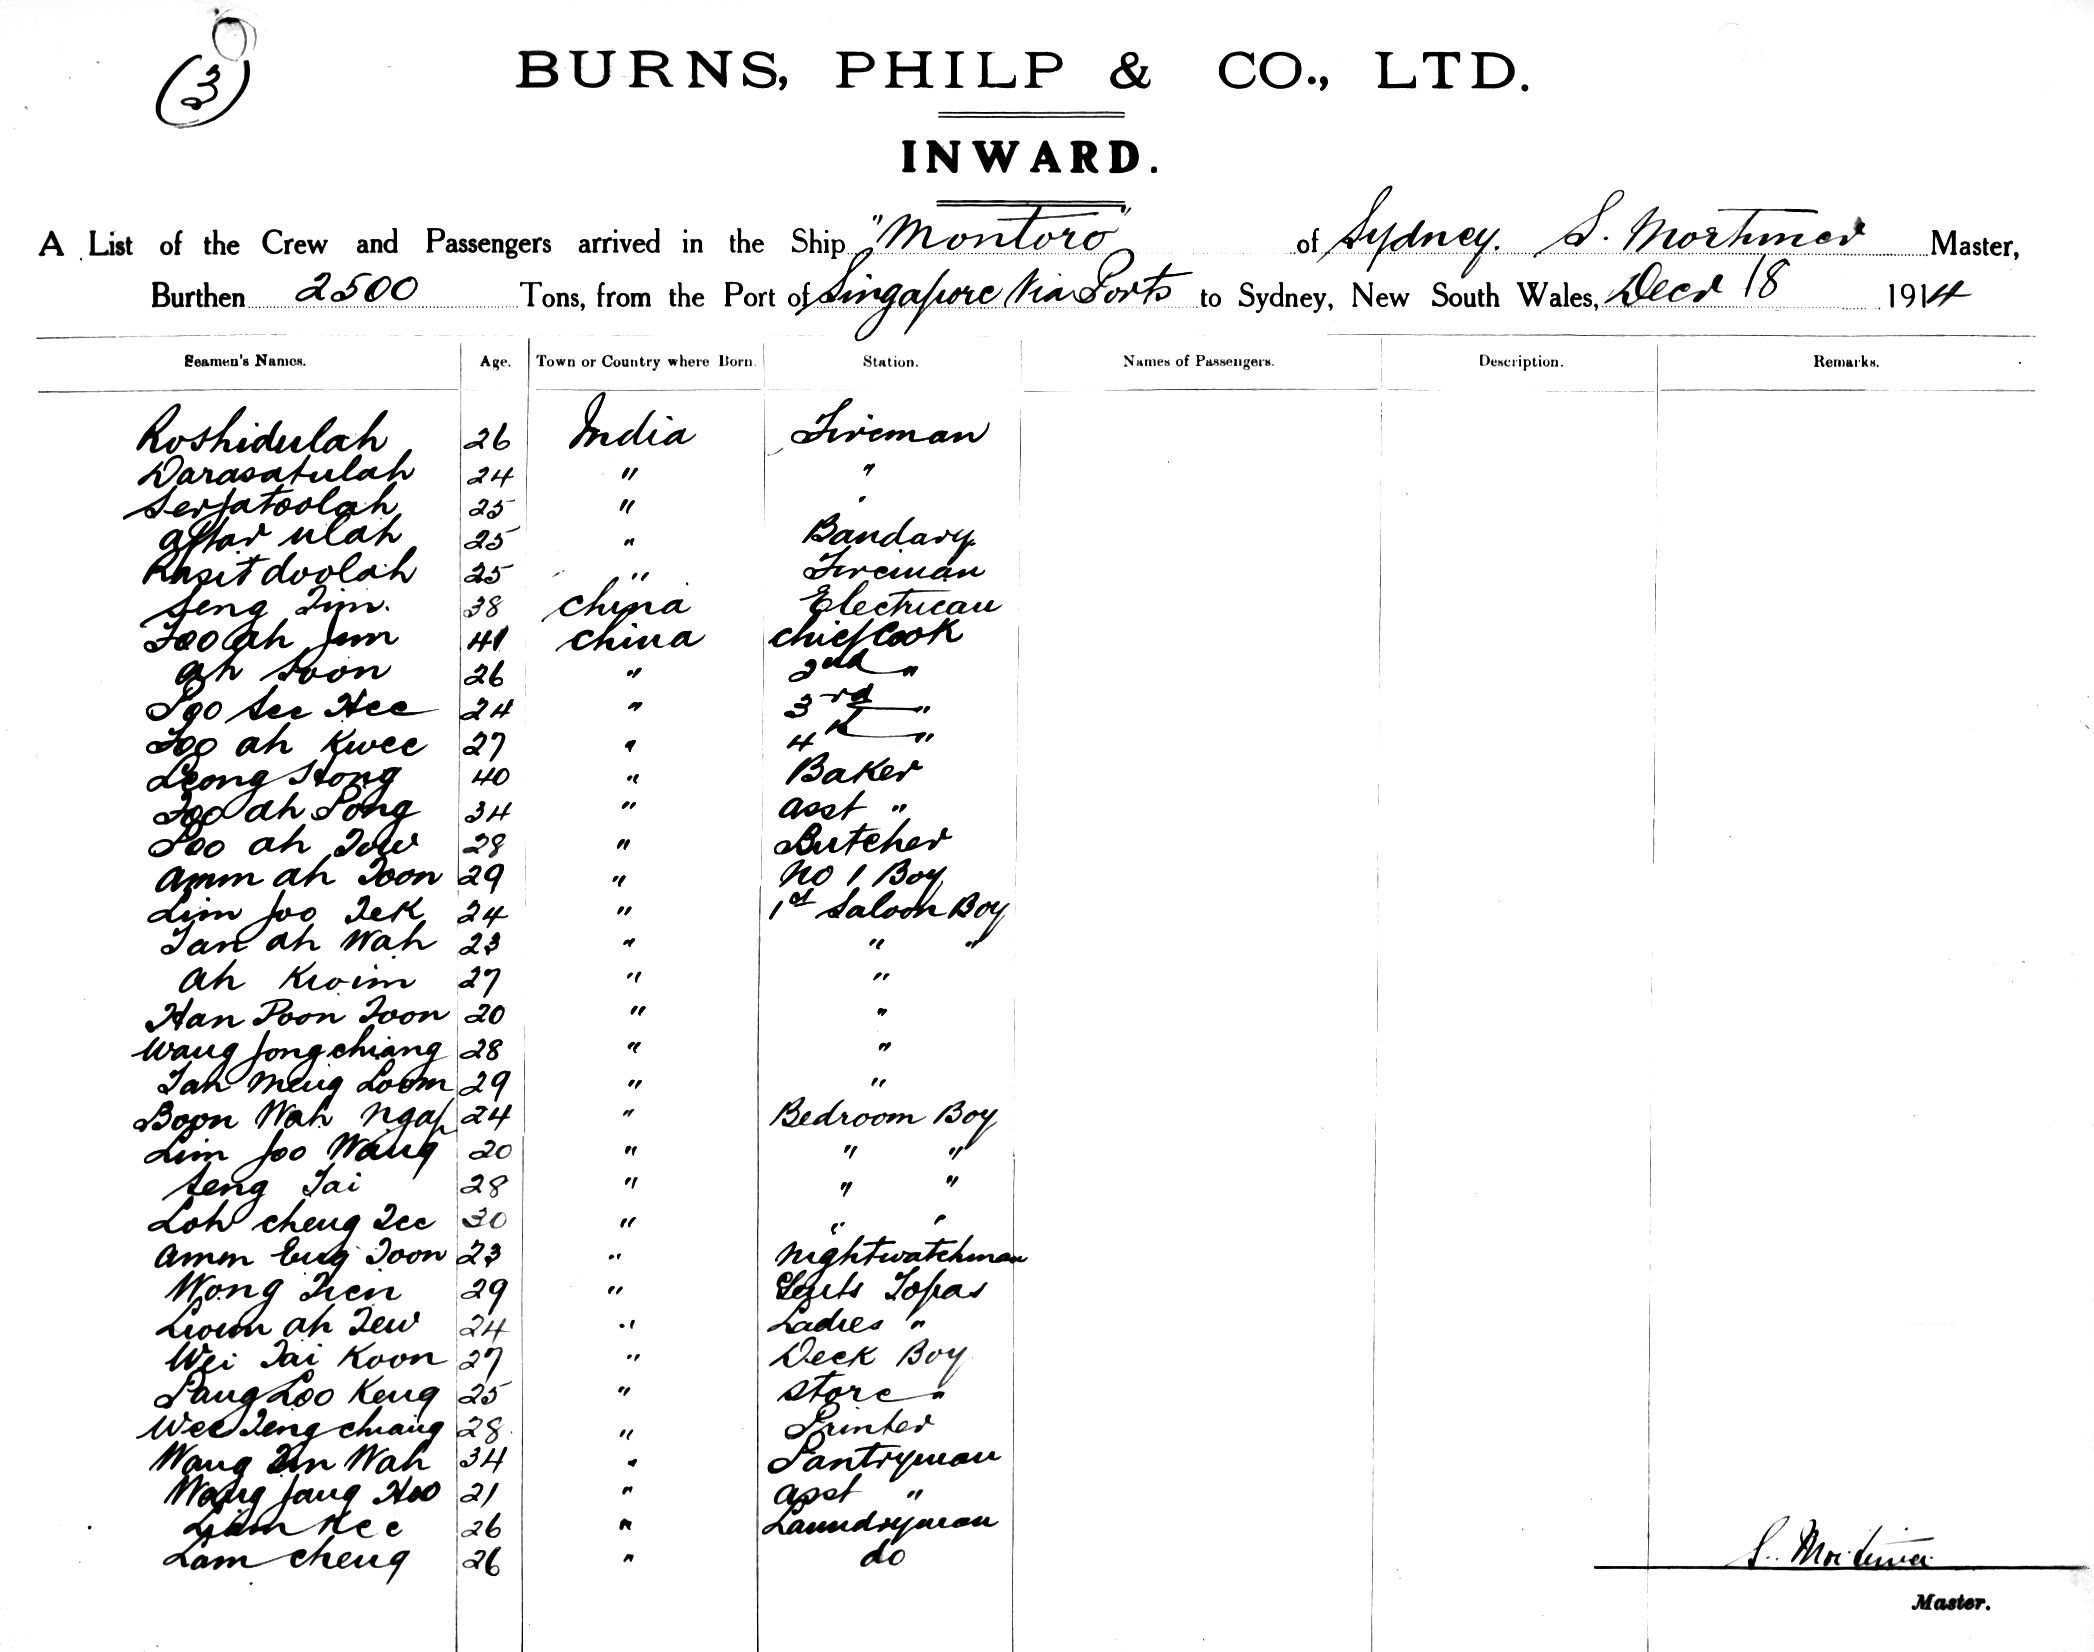 (3)
BURNS, PHILP & CO., LTD.
INWARD.
A List of the Crew and Passengers arrived in the Ship "Montoro" of Sydney. S. Mortimer Master,
Burthen 2500 Tons, from the Port of Singapore Via Ports to Sydney, New South Wales, Decr 18 1914
Seamen's Names. Age. Town or Country where Born. Station. Names of Passengers. Description. Remarks.
Roshidulah 26 India Fireman
Darasatulah 24 " "
Serjatoolah 25 " "
Aftar ulah 25 " Bandary
Rasit doolah 25 " Fireman
Seng Tim. 38 China Electrican
Foo ah Jim 41 China Chief Cook
Ah Soon 26 " 2nd "
Soo See Hee 24 " 3rd "
Foo ah Kwee 27 " 4th "
Leong Hong 40 " Baker
Foo ah Pong 34 " asst "
Soo ah Tow 28 " Butcher
Amm ah Toon 29 " No 1 Boy
Lim Joo Tek 24 " 1st Saloon Boy
Tan ah Wah 23 " " "
Ah Kwim 27 " "
Han Poon Toon 20 " "
Wang Jong chiang 28 " "
Tan Meng Loom 29 " "
Boon Wah Ngap 24 " Bedroom Boy
Lim Joo Wang 20 " " "
Seng Tai 28 " " "
Loh cheng Tee 30 " " "
Amm Eng Toon 23 " Nightwatchman
Wong Tien 29 " Gents Topas
ah Tew 24 " Ladies "
Wei Tai Koon 27 " Deck Boy
Pang Loo Keng 25 " Store "
Wee Teng chiang 28 " Printer
Wang Wah 34 " Pantryman
Wang Jang Hoo 21 " asst "
Liam Kee 26 " Laundryman
Lam cheng 26 " do
S. Mortimer
Master.